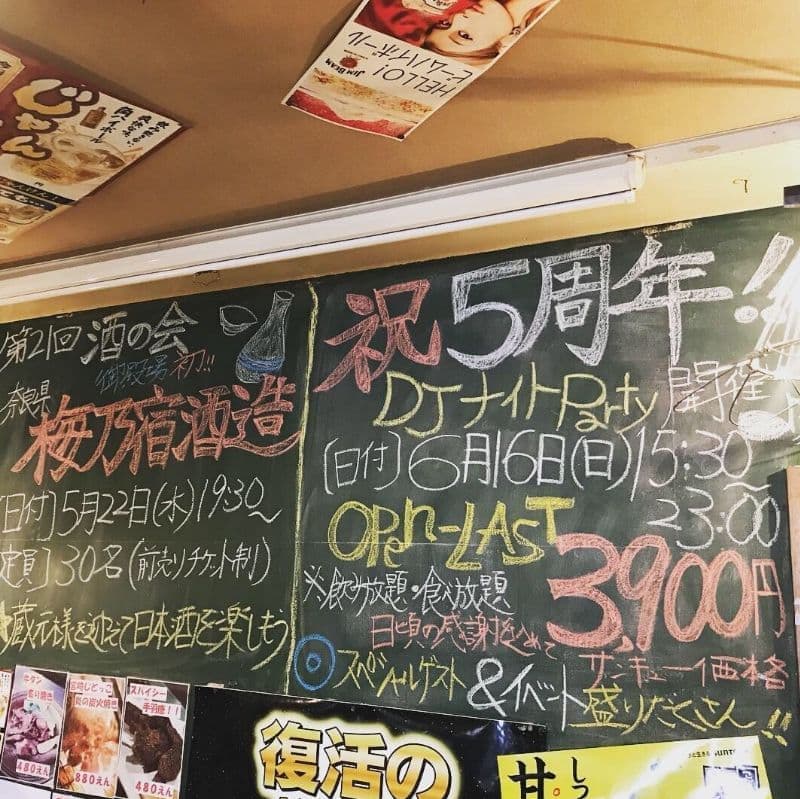 HELLO!
ビームハイボール
JIM BEAM
じゃん
角ハイボール
第21回 酒の会
御殿場 初!!
奈良県
梅乃宿酒造
[日付]5月22日(水)19:30~
定員]30名(前売りチケット制)
蔵元様を迎えて日本酒を楽しもう
祝5周年!!
DJナイトParty開催
[日付]6月16日(日)15:30~
23:00
OPen-LAST
※飲み放題・食べ放題
3,900円
日頃の感謝を込めて
サンキュー価格
◎スペシャルゲスト&イベント盛りだくさん!!
牛タン
炙り焼き
480えん
宮崎じどっこ
炭の炭火焼き
880えん
スパイシー
手羽唐!!
480えん
復活の
甘。
しつ
SUNTORY